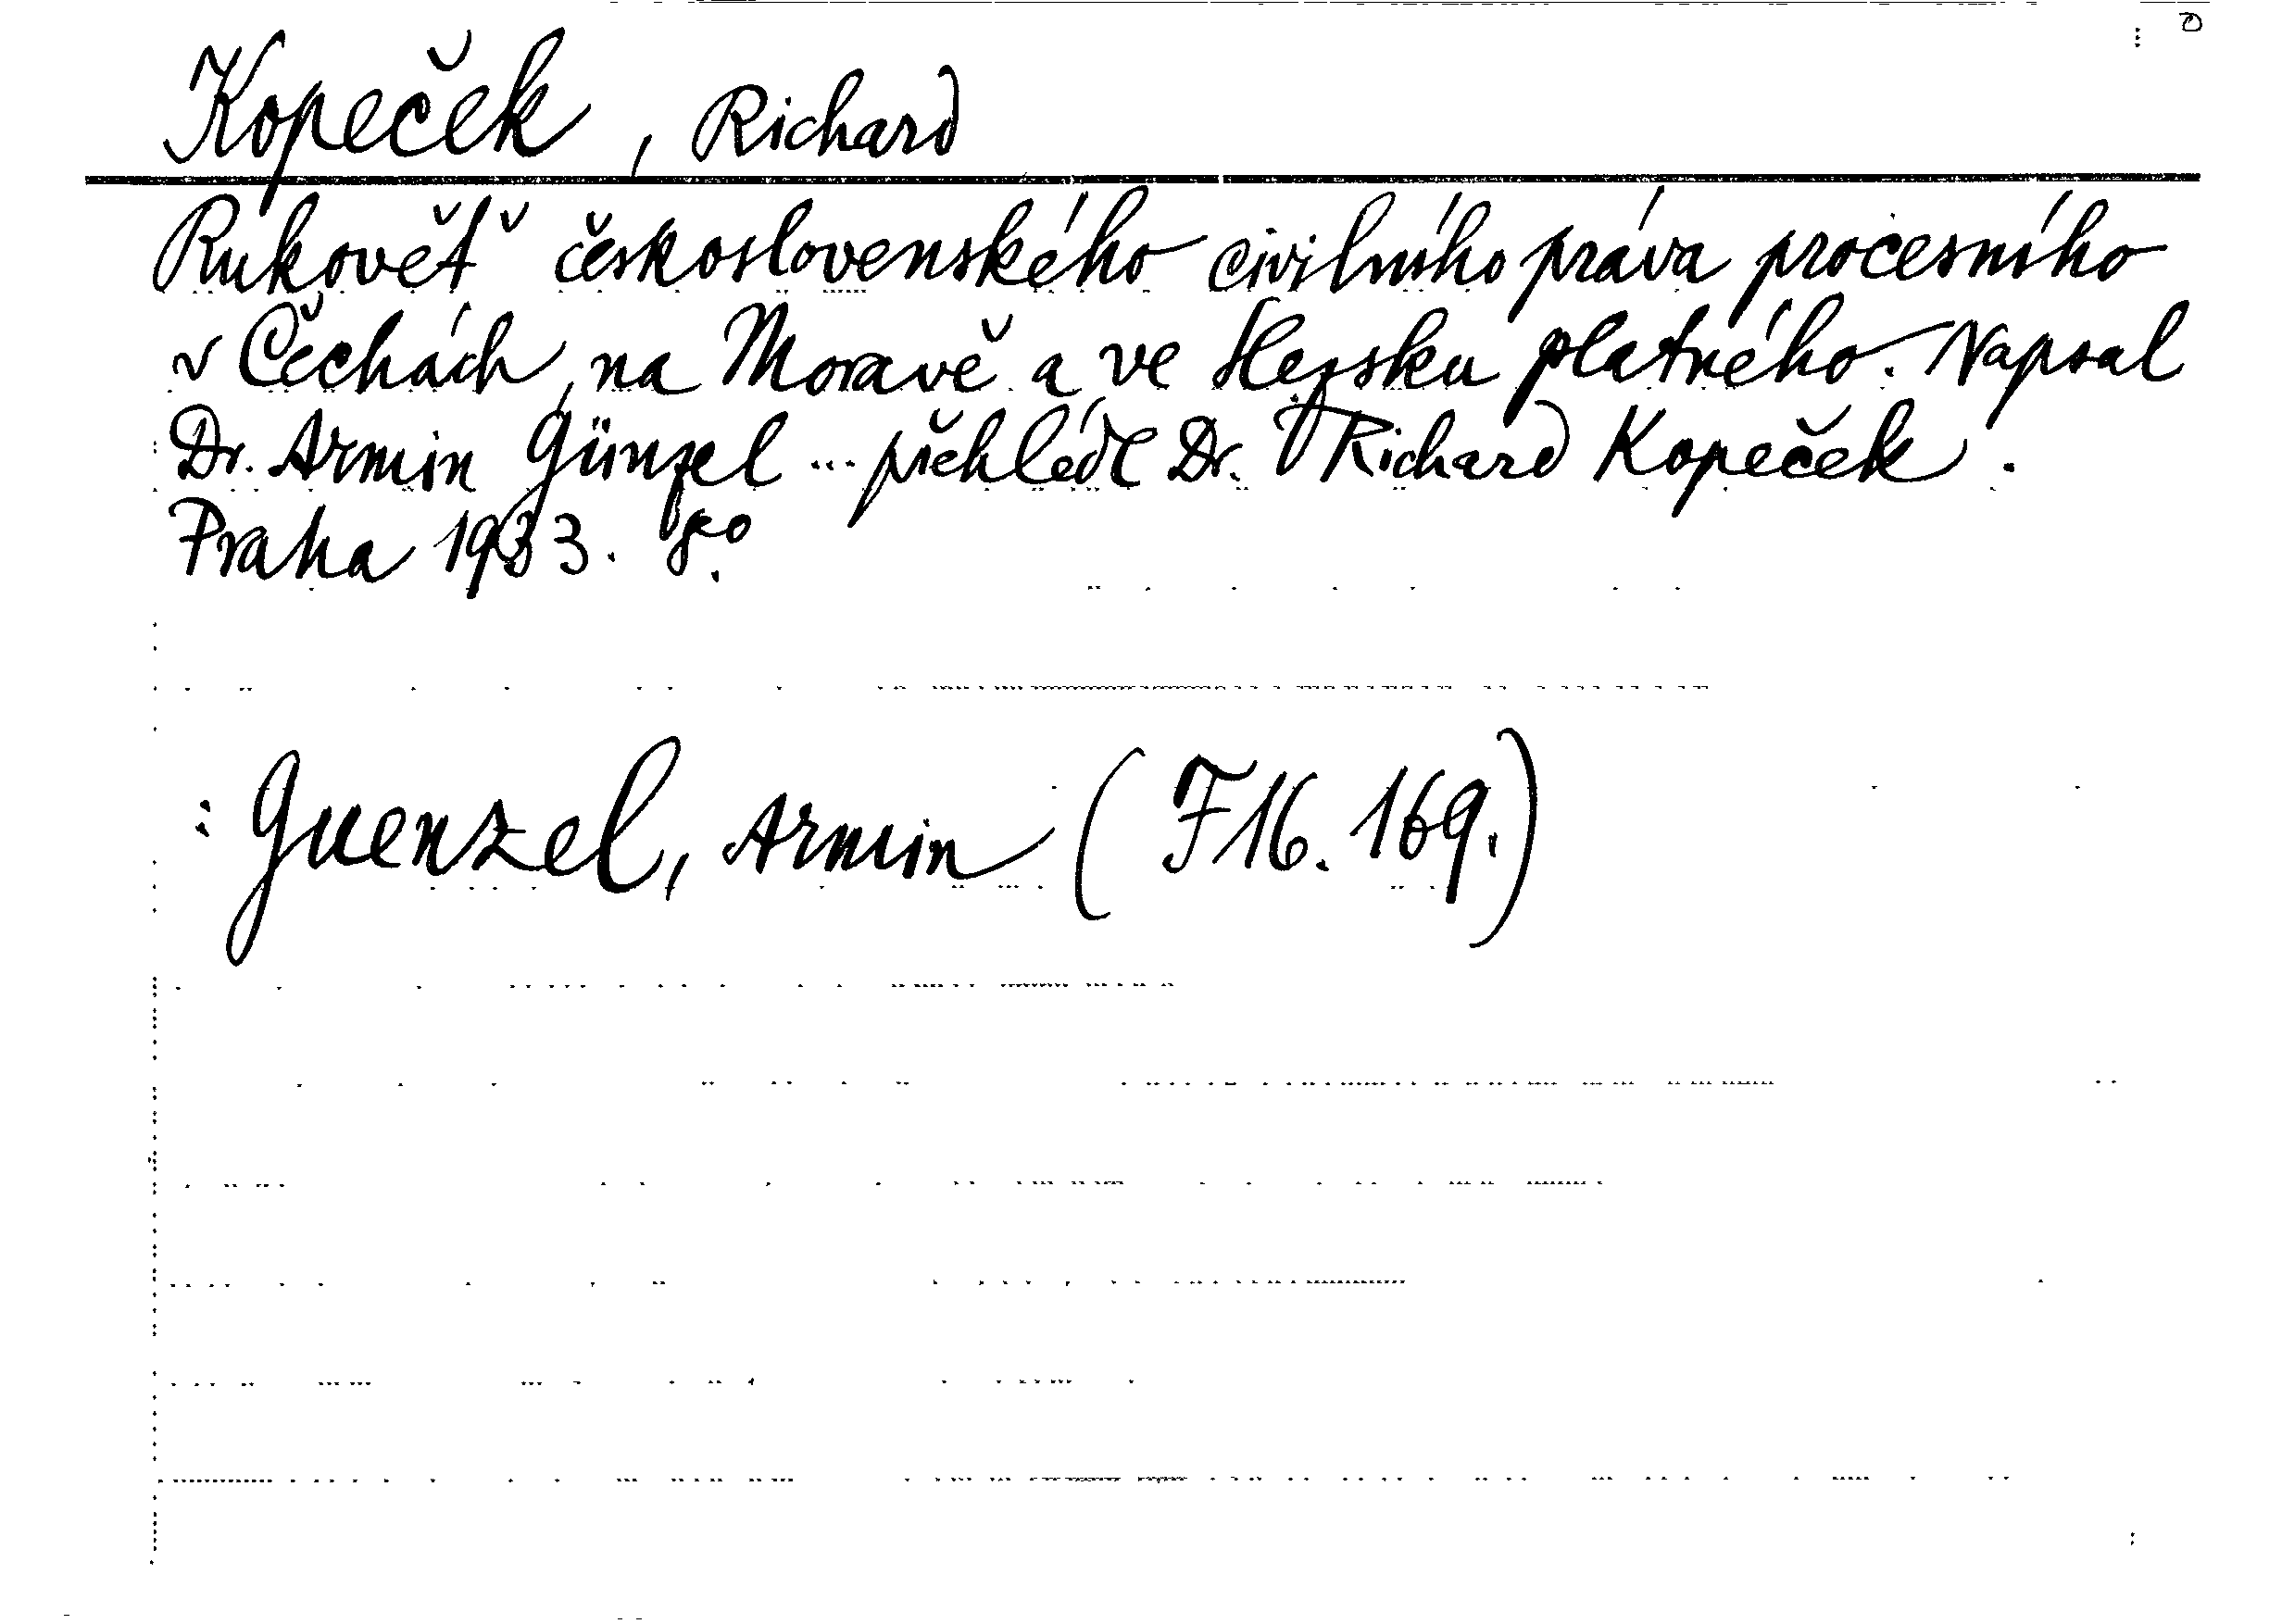 Kopeček, Richard
Rukověť československého civilního práva procesního
v Čechách, na Moravě a ve Slezsku platného. Napsal
Dr. Armin Günzel ... přehlédl Dr. Richard Kopeček.
Praha 1933. 8°.
: Guenzel, Armin (F16.169.)